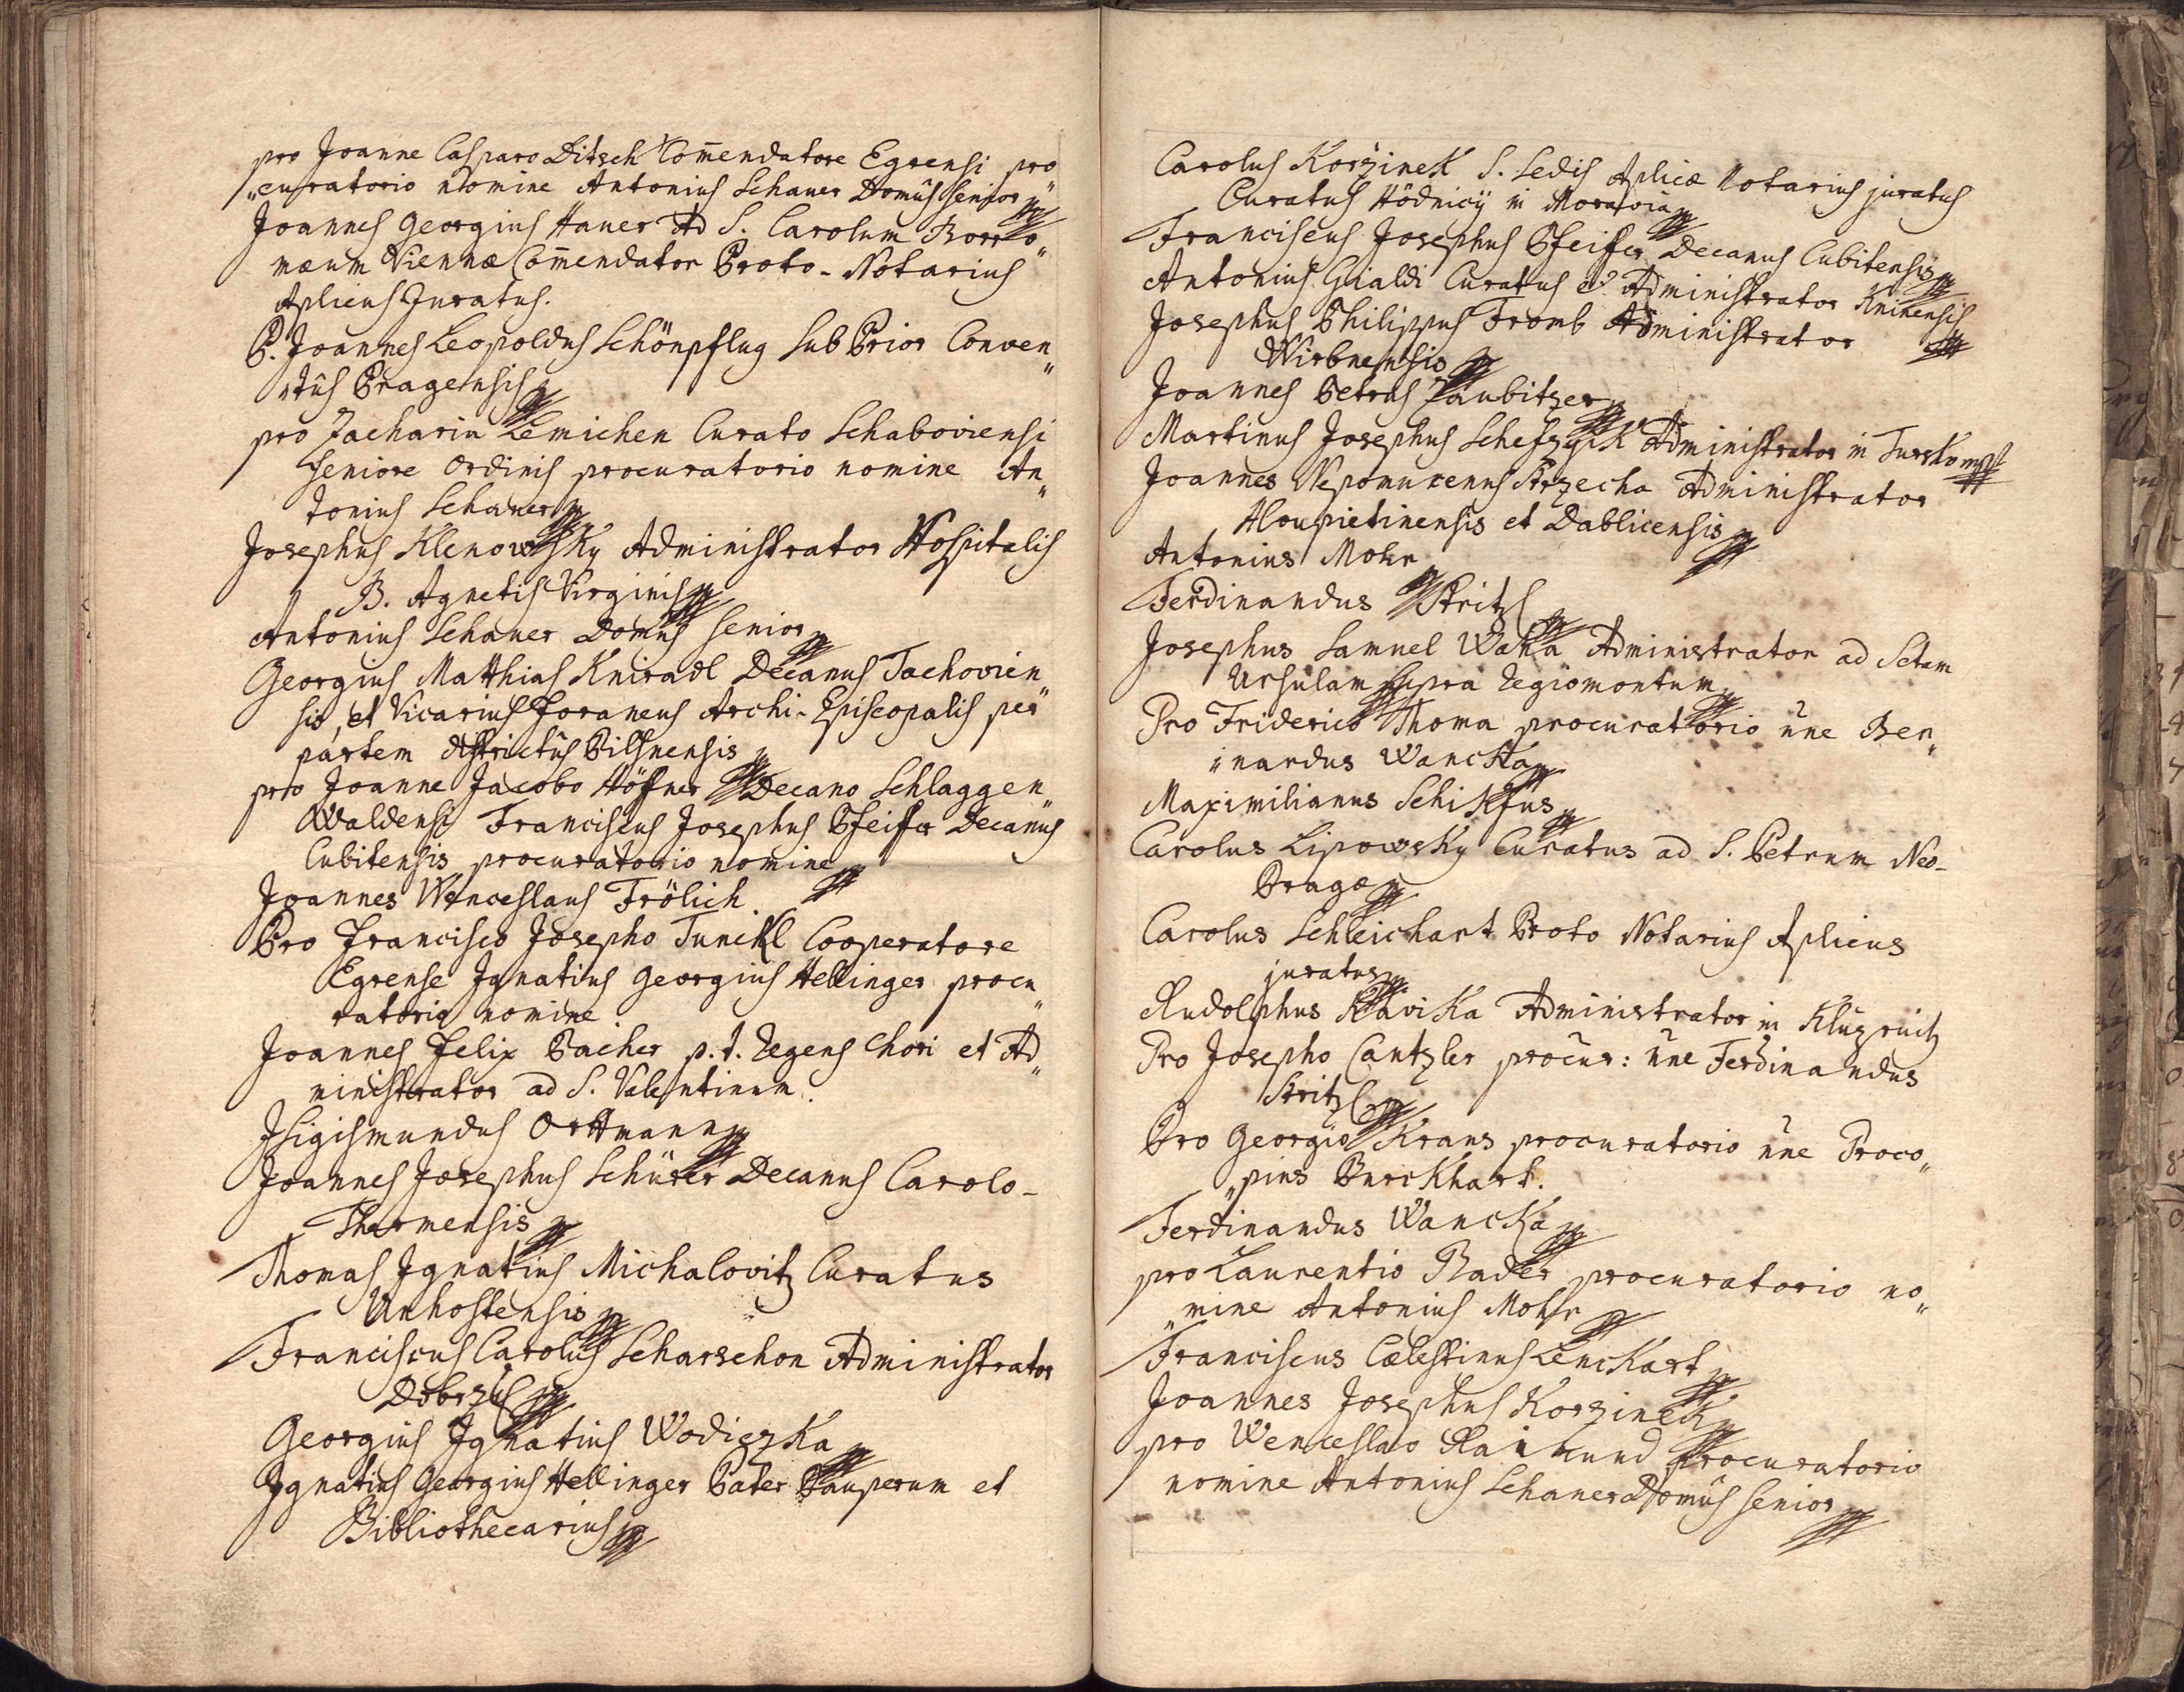 pro Joanne Casparo Ditsch Com̅endatore Egrensi pro„
„curatorio nomine Antonius Schauer Domûs senior
Joannes Georgius Hauer Ad S. Carolum Borro„
mæum Viennæ Com̅endator Proto-Notarius
Aplicus Juratus.
P. Joannes Leopoldus Schönpflug Sub Prior Conven„
„tûs Pragensis
pro Zacharia Lemichen Curato Schaboviensi
Seniore Ordinis procuratorio nomine An„
tonius Schauer
Josephus Klenowsky Administrator Hospitalis
B. Agnetis Virginis
Antonius Schauer Domûs senior
Georgius Matthias Kniradl Decanus Tachovien„
sis, et Vicarius foraneus Archi-Episcopalis per
partem districtûs Pilsnensis
pro Joanne Jacobo Höfner Decano Schlaggen„
Waldensi Franciscus Josephus Pfeiffer Decanus
Cubitensis procuratorio nomine
Joannes Wenceslaus Frölich
Pro Francisco Josepho Tunckl Cooperatore
Egrense Ignatius Georgius Hellinger procu„
ratorio nomine
Joannes Felix Bacher p.t. Regens Chori et Ad„
ministrator ad S. Valentinum.
Sigismundus Orttmann
Joannes Josephus Schürer Decanus Carolo-
Thermensis
Thomas Ignatius Michalovitz Curatus
Unhostensis
Franciscus Carolus Scharschon Administrator
Dobrzÿ
Georgius Ignatius Wodiczka
Ignatius Georgius Hellinger Pater Pauperum et
Bibliothecarius
Carolus Koržinek S. Sedis Aplicæ Notarius juratus
Curatus Hödnicÿ in Moravia
Franciscus Josephus Pfeiffer Decanus Cubitensis
Antonius Gialdi Curatus et Administrator Kninensis
Josephus Philippus Fromb Administrator
Wirbnensis
Joannes Petrus Zaubitzer
Martinus Josephus Schefczyik Administrator in Tursko
Joannes Nepomucenus Strzecha Administrator
Hloupietinensis et Dablicensis
Antonius Mohr
Ferdinandus Stritzl
Josephus Samuel Waha Administrator ad Sctam
Ursulam supra Regiomontum
Pro Friderico Thoma procuratorio n̅ne Ber„
„nardus Wancka
Maximilianus Schikfus
Carolus Lipowsky Curatus ad S. Petrum Neo-
Pragæ
Carolus Schleichart Proto Notarius Aplicus
juratus
Rudolphus Klavika Administrator in
Pro Josepho Cantzler procur: n̅ne Ferdinandus
Stritzl
Pro Georgio Kraus procuratorio n̅ne Proco„
„pius Burckhart.
Ferdinandus Wancka
pro Laurentio Bader procuratorio no„
„mine Antonius Mohr
Franciscus Cælestinus Lenckart
Joannes Josephus Korzinek
pro Wenceslao Raimund Procuratorio
nomine Antonius Schauer Domûs senior